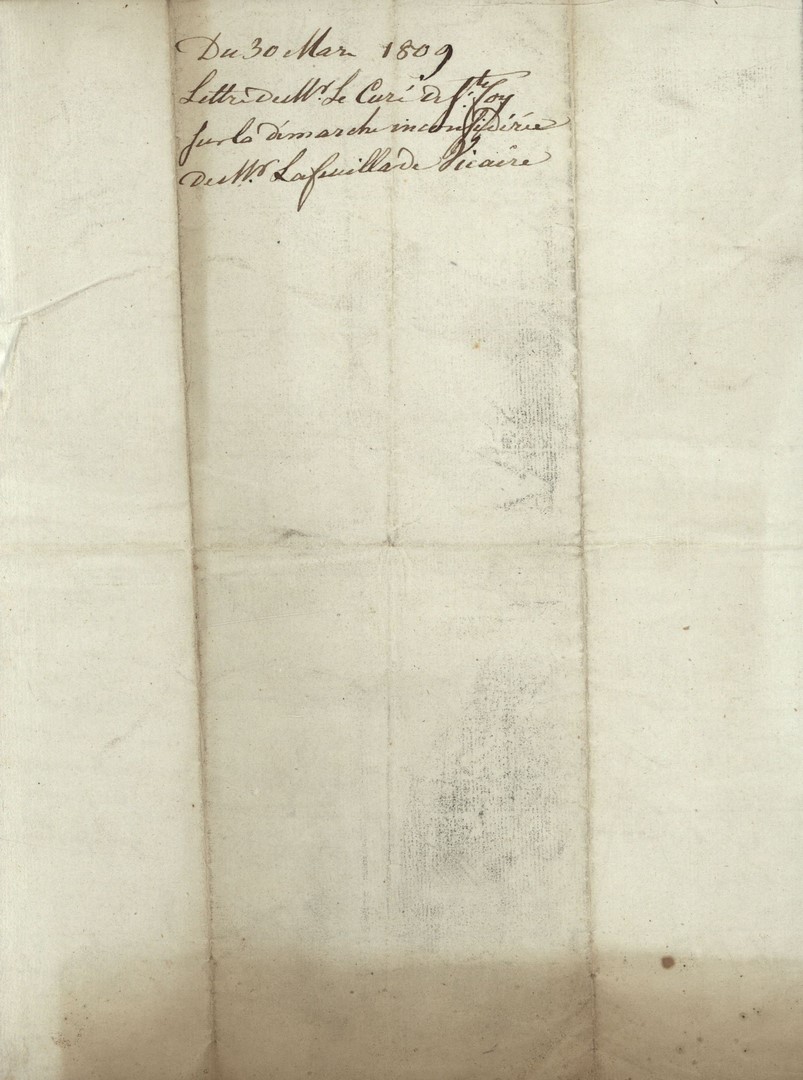 Du 30 Mars 1809
Lettre de Mr. Le Curé de Ste. Foy
sur la démarche inconsidérée
de Mr. Lafeuillade Vicaire